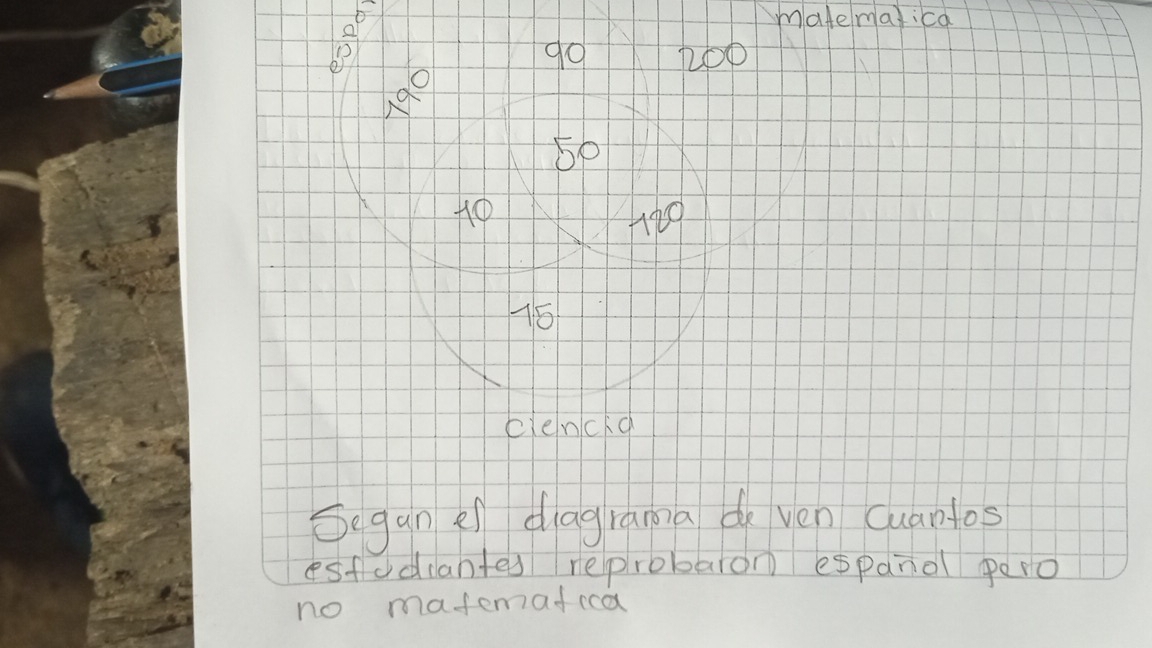 matematica
90
200
190
50
10
120
15
ciencia
Segun el diagrama de ven cuantos
estudiantes reprobaron español pero
no matematica